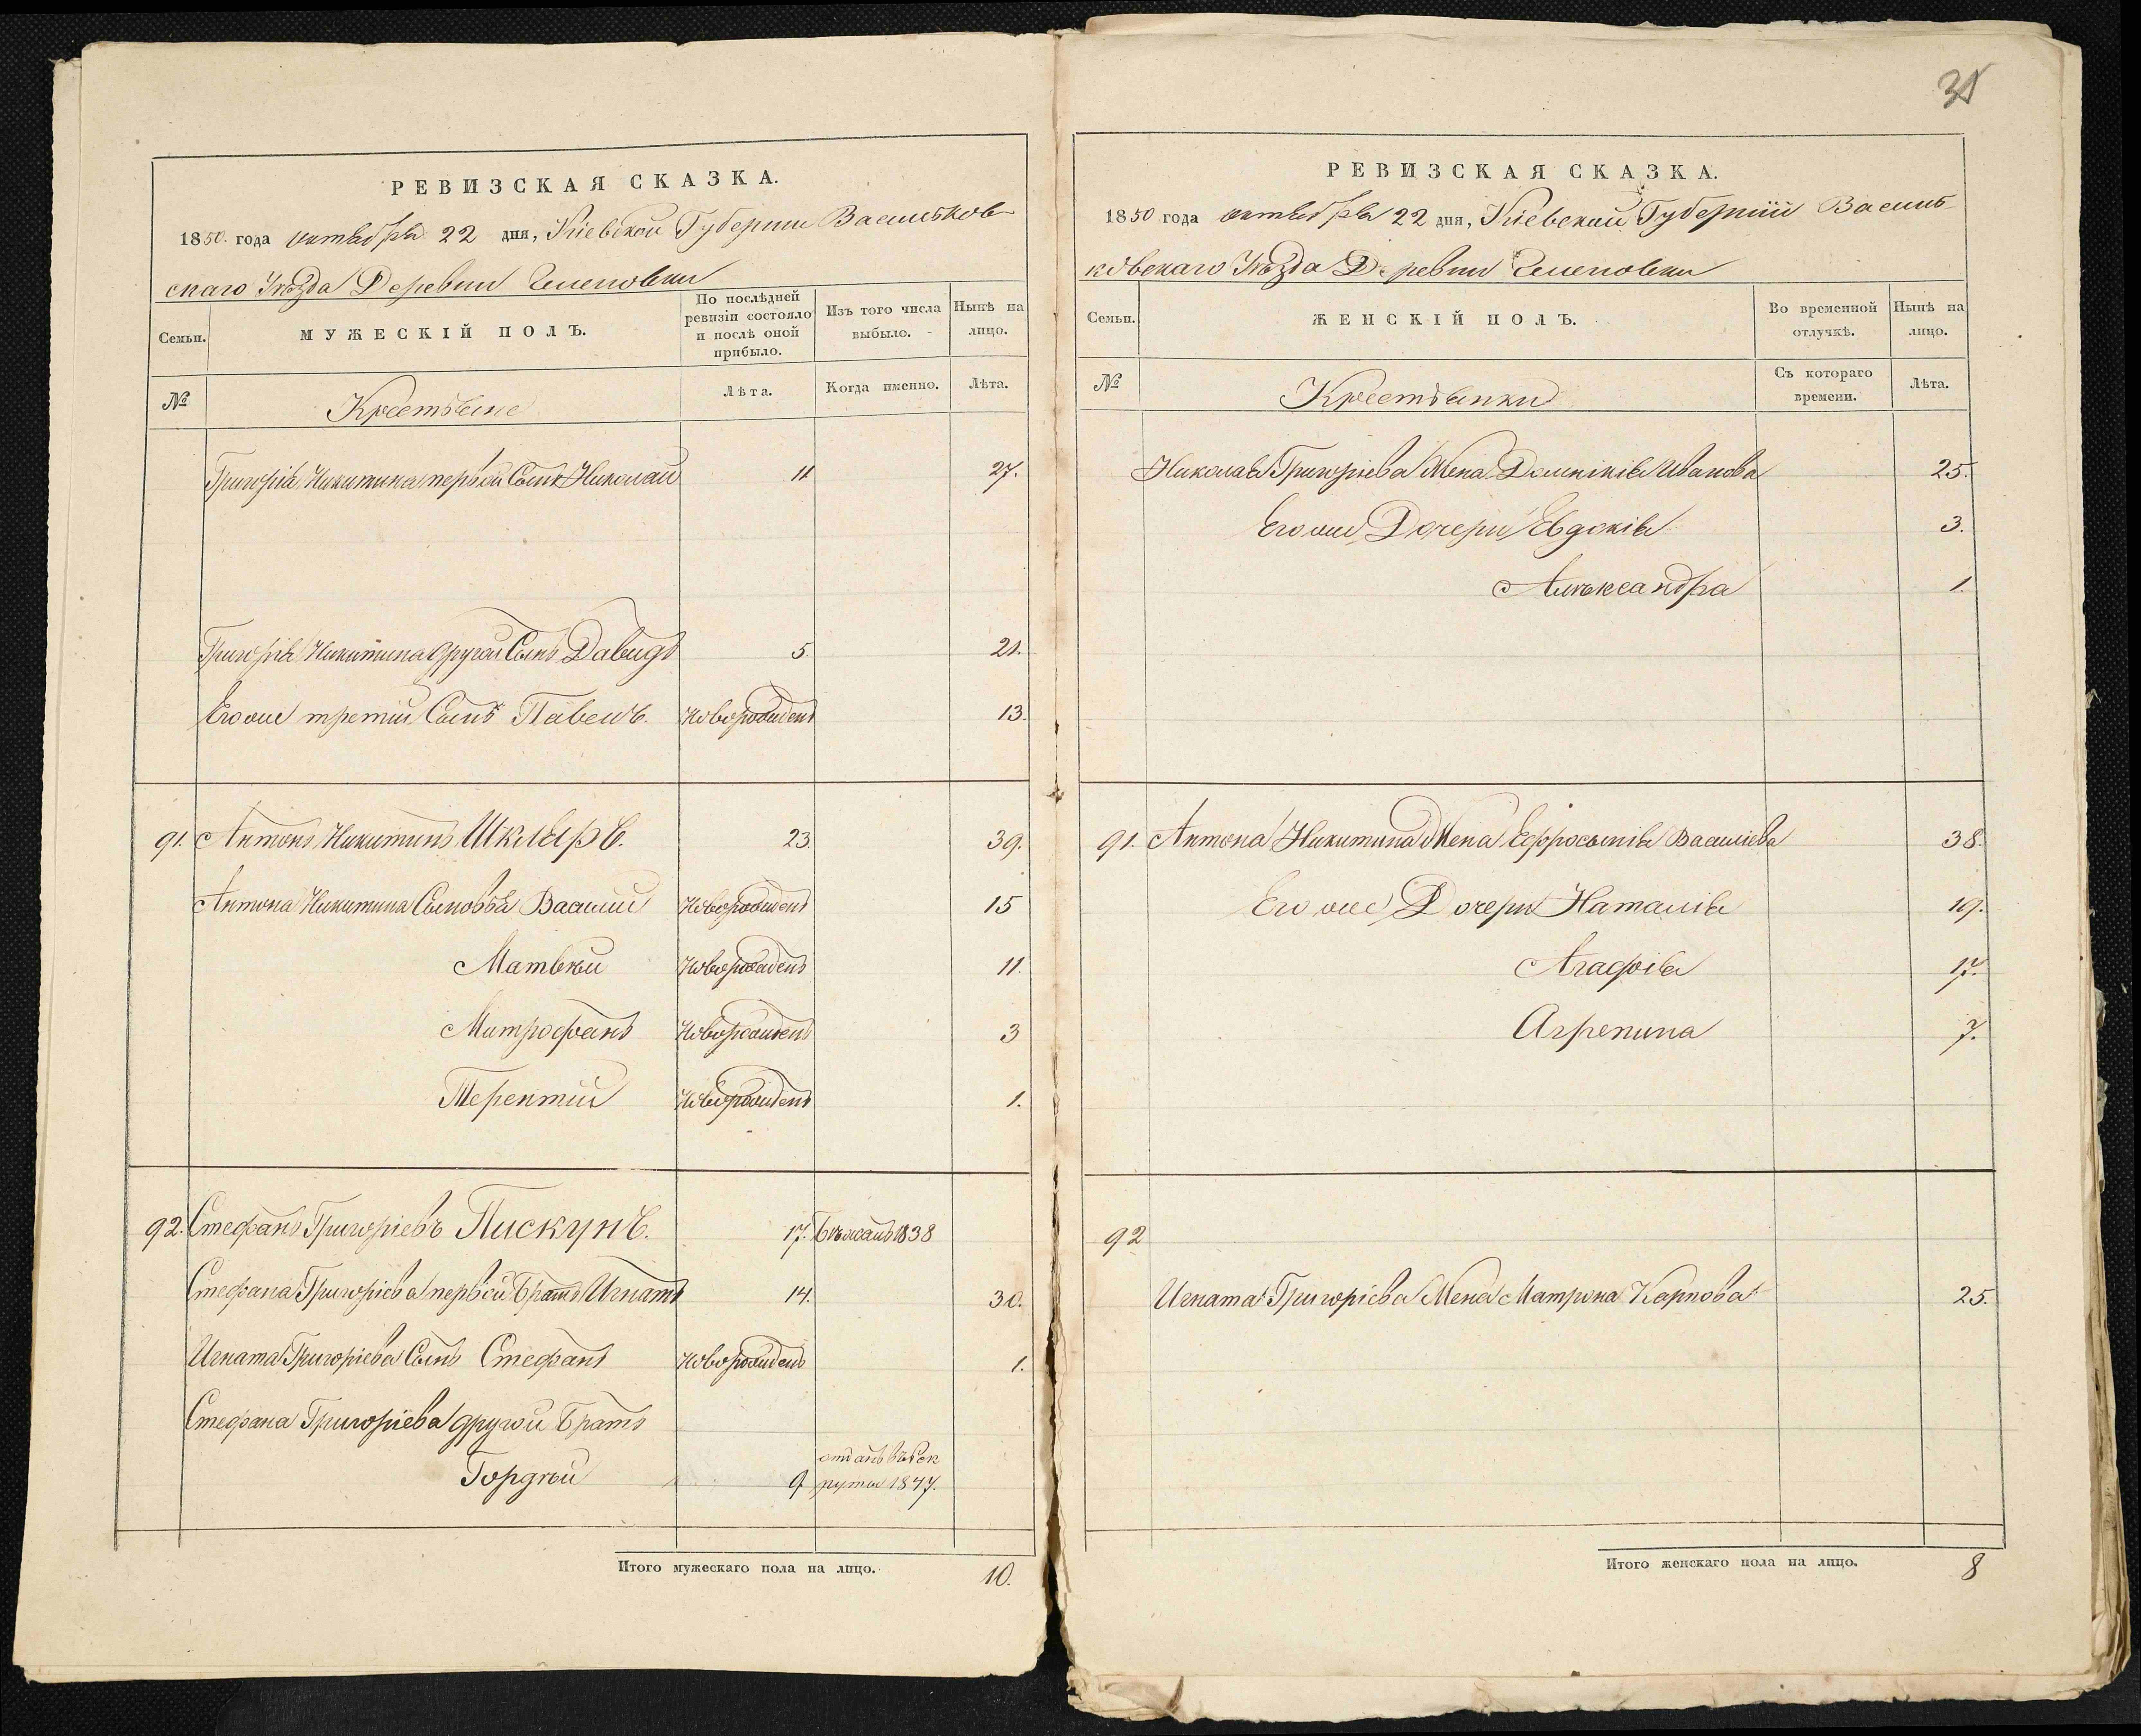 РЕВИЗСКАЯ СКАЗКА.
1850. года октября 22 дня, Кіевской Губерніи Васильков
скаго Уѣзда Деревни
Семьи.
МУЖЕСКІЙ ПОЛЪ.
По послѣдней ревизіи состояло и послѣ оной прибыло.
Изъ того числа выбыло.
Нынѣ на лицо.
№
Крестьяне
Лѣта.
Когда именно.
Лѣта.
Григорія Никитина первой Сынъ Николай 11 27.
Григорія Никитина другой Сынъ Давидъ 5. 21.
Его же третій Сынъ Павелъ. Новорожденъ 13.
91. Антонъ Никитинъ Шкляръ. 23. 39.
Антона Никитина Сыновья Василій Новорожденъ 15
Матвѣй Новорожденъ 11.
Митрофанъ Новорожденъ 3
Терентій Новорожденъ 1.
92. Стефанъ Григоріевъ Пискунъ. 17. Бѣжалъ 1838
Стефана Григоріева первой Братъ Игнатъ 14. 30.
Игната Григоріева Сынъ Стефанъ Новорожденъ 1.
Стефана Григоріева другой Братъ
Гордѣй 9 отданъ въ Рек
руты 1847.
Итого мужескаго пола на лицо. 10.
РЕВИЗСКАЯ СКАЗКА.
1850 года октября 22 дня, Кіевской Губерніи Василь
ковскаго Уѣзда Деревни
Семьи.
ЖЕНСКІЙ ПОЛЪ.
Во временной отлучкѣ.
Нынѣ на лицо.
№
Крестьянки
Съ котораго времени.
Лѣта.
Николая Григоріева Жена Домникія Иванова 25.
Его же Дочери Евдокія 3.
Александра 1.
91. Антона Никитина Жена Ефросынія Василіева 38.
Его же Дочери Наталія 19.
Агафія 17.
Агрепина 7.
92
Игната Григоріева Жена Матрона Карпова 25.
Итого женскаго пола на лицо. 8